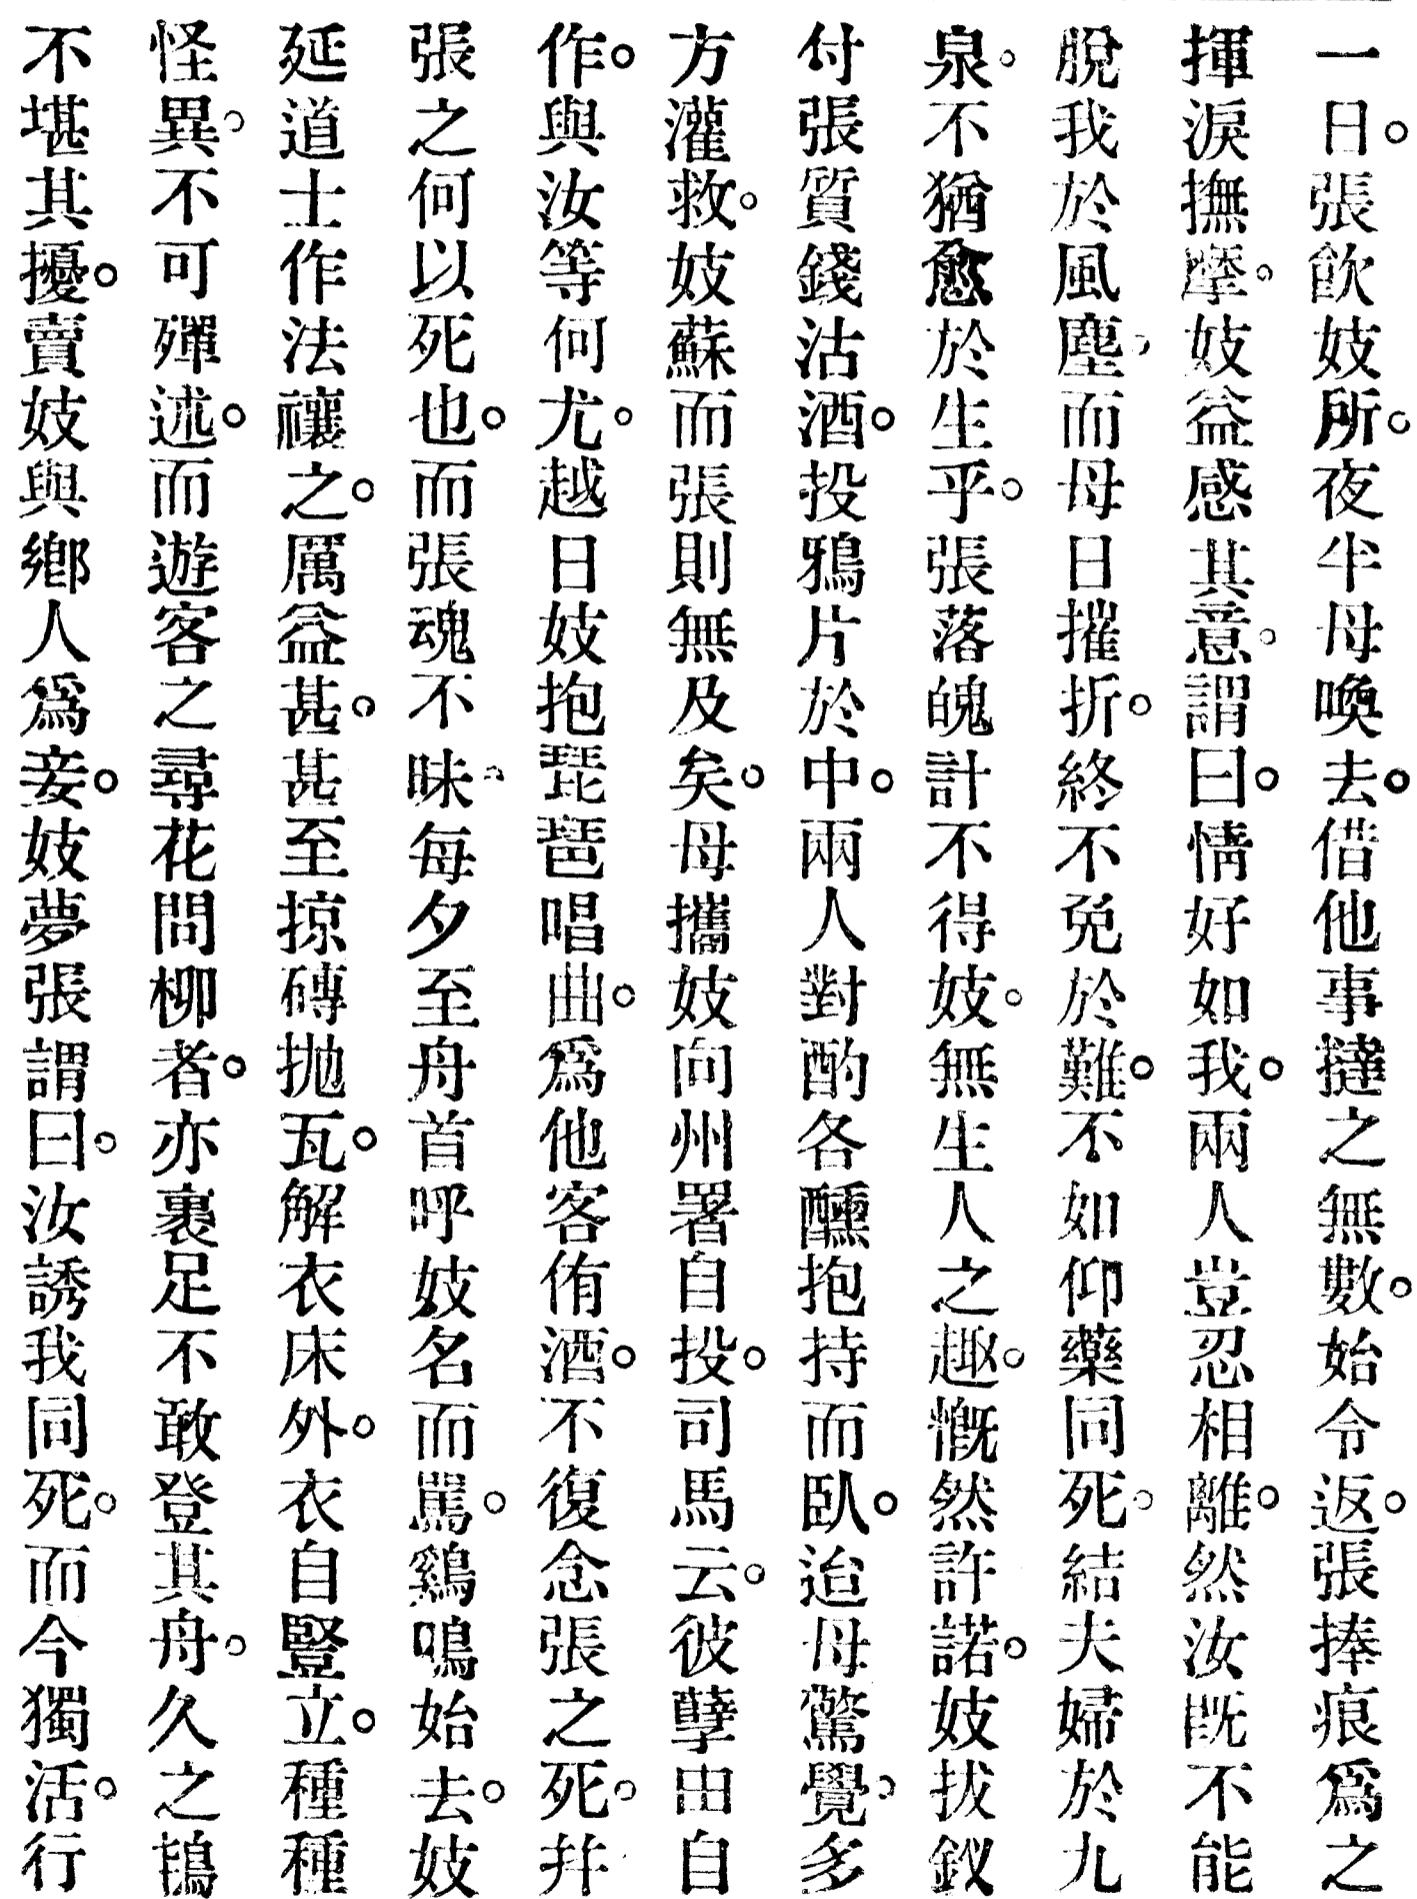 一日。張飲妓所。夜半母喚去。借他事撻之無數。始令返。張捧痕爲之
揮淚撫摩。妓益感其意。謂曰。情好如我。兩人豈忍相離。然汝既不能
脫我於風塵。而母日摧折。終不免於難。不如仰藥同死。結夫婦於九
泉。不猶愈於生乎。張落魄計不得妓。無生人之趣。慨然許諾。妓拔釵
付張質錢沽酒。投鴉片於中。兩人對酌各醺抱持而臥。迨母驚覺。多
方灌救。妓蘇而張則無及矣。母攜妓向州署自投。司馬云。彼孽由自
作。與汝等何尤。越日妓抱琵琶唱曲。爲他客侑酒。不復念張之死。幷
張之何以死也。而張魂不昧。每夕至舟首呼妓名而罵。鷄鳴始去。妓
延道士作法禳之。厲益甚。甚至掠磚拋瓦。解衣床外。衣自豎立。種種
怪異。不可殫述。而遊客之尋花問柳者。亦裹足不敢登其舟。久之鴇
不堪其擾。賣妓與鄉人爲妾。妓夢張謂曰。汝誘我同死。而今獨活。行